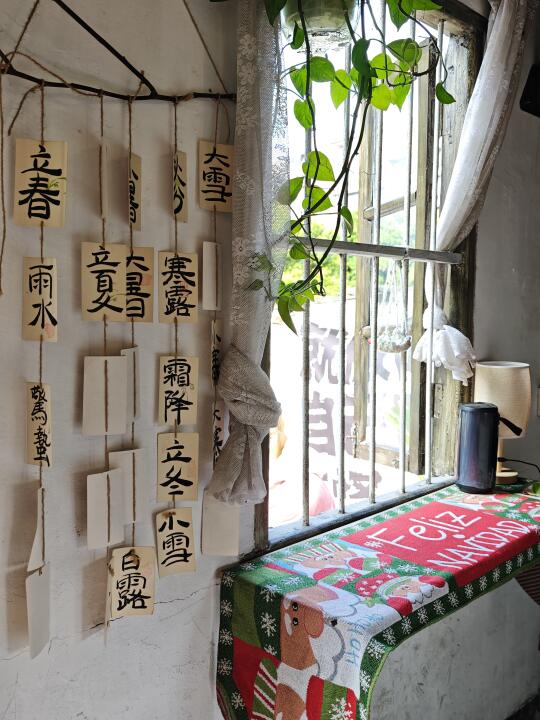 立春
雨水
驚蟄
立夏
大暑
白露
寒露
霜降
立冬
小雪
大雪
就
自
Feliz
NAVIDAD